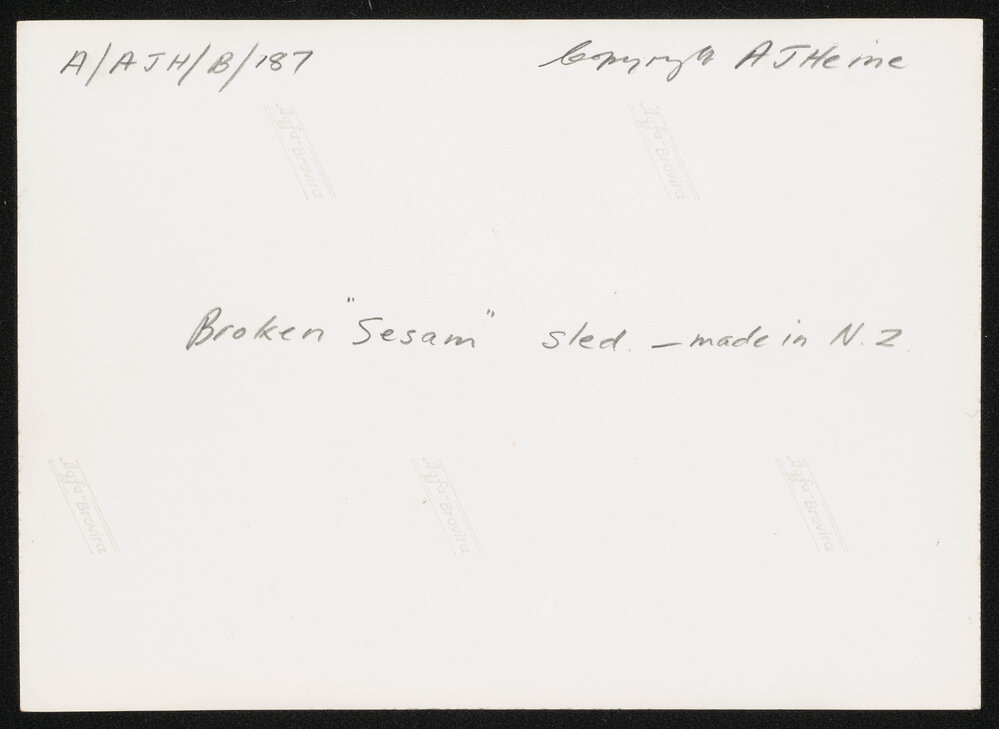 A/AJH/B/187
Copyright AJHeine
Agfa-Brovira
Agfa-Brovira
Broken "Sesam" sled. - made in N.Z.
Agfa-Brovira
Agfa-Brovira
Agfa-Brovira